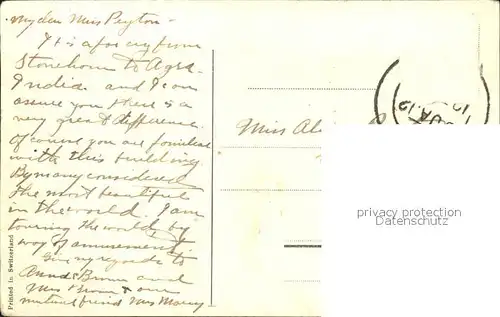 My dear Miss Peyton -
It is a far cry from
Stonehouse to Agra -
India and I can
assure you there is a
very great difference.
Of course you are familiar
with this building
By many considered
the most beautiful
in the world. I am
touring the world by
way of amusement.
Give my regards to
Brown and
Mrs Brown & our
mutual friend Mrs
Miss
privacy protection
Datenschutz
Printed in Switzerland